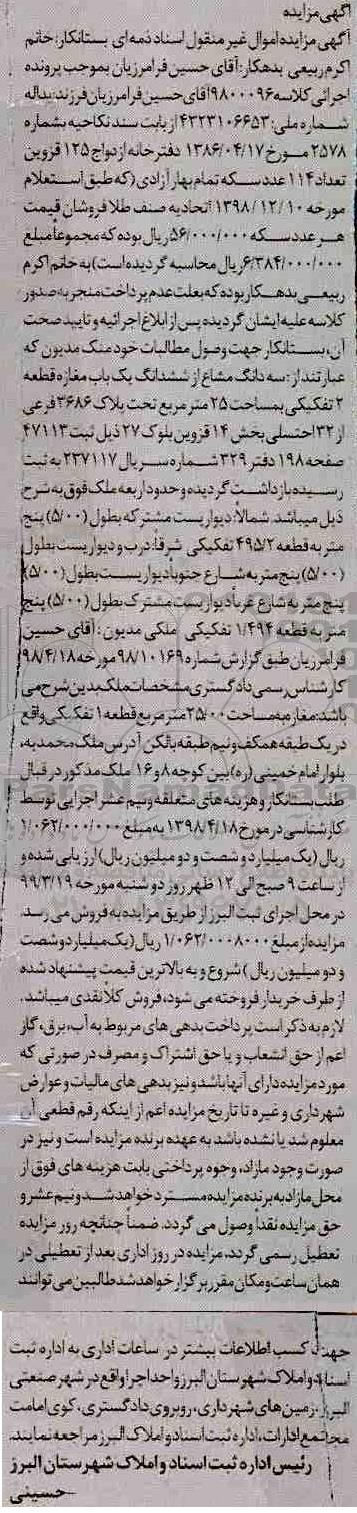 آگهی مزایده
آگهی مزایده اموال غیر منقول اسناد ذمه ای بستانکار: خانم
اکرم ربیعی بدهکار: آقای حسین فرامرزیان بموجب پرونده
اجرائی کلاسه ۹۸۰۰۰۹۶ آقای حسین فرامرزیان فرزند: یداله
شماره ملی: ۴۳۲۳۱۰۶۶۵۳ از بابت سند نکاحیه بشماره
۲۵۷۸ مورخ ۱۳۸۶/۰۴/۱۷ دفترخانه ازدواج ۱۲۵ قزوین
تعداد ۱۱۴ عدد سکه تمام بهار آزادی (که طبق استعلام
مورخه ۱۳۹۸/۱۲/۱۰ اتحادیه صنف طلا فروشان قیمت
هر عدد سکه ۵۶/۰۰۰/۰۰۰ ریال بوده که مجموعا مبلغ
۶/۳۸۴/۰۰۰/۰۰۰ ریال محاسبه گردیده است) به خانم اکرم
ربیعی بدهکار بوده که بعلت عدم پرداخت منجر به صدور
کلاسه علیه ایشان گردیده پس از ابلاغ اجرائیه و تایید صحت
آن، بستانکار جهت وصول مطالبات خود ملک مدیون که
عبارتند از: سه دانگ مشاع از ششدانگ یک باب مغازه قطعه
۲ تفکیکی بمساحت ۲۵ متر مربع تحت پلاک ۳۶۸۶ فرعی
از ۳۲ اصلی بخش ۱۴ قزوین بلوک ۲۷ ذیل ثبت ۴۷۱۱۳
صفحه ۱۹۸ دفتر ۳۲۹ شماره سریال ۲۳۷۱۱۷ به ثبت
رسیده بازداشت گردیده و حدود اربعه ملک فوق به شرح
ذیل میباشد. شمالا: دیواریست مشترک بطول (۵/۰۰) پنج
متر به قطعه ۴۹۵/۲ تفکیکی شرقا: درب و دیواریست بطول
(۵/۰۰) پنج متر به شارع جنوبا دیواریست بطول (۵/۰۰)
پنج متر به شارع غربا دیواریست مشترک بطول (۵/۰۰) پنج
متر به قطعه ۱/۴۹۴ تفکیکی ملکی مدیون: آقای حسین
فرامرزیان طبق گزارش شماره ۹۸/۱۰۱۶۹ مورخه ۹۸/۴/۱۸
کارشناس رسمی دادگستری مشخصات ملک بدین شرح می
باشد: مغازه به مساحت ۲۵/۰۰ متر مربع قطعه ۱ تفکیکی واقع
در یک طبقه همکف و نیم طبقه بالکن آدرس ملک محمدیه،
بلوار امام خمینی (ره) بین کوچه ۸ و ۱۶ ملک مذکور در قبال
طلب بستانکار و هزینه های متعلقه و نیم عشر اجرایی توسط
کارشناسی در مورخ ۱۳۹۸/۴/۱۸ به مبلغ ۱/۰۶۲/۰۰۰/۰۰۰
ریال (یک میلیارد و شصت و دو میلیون ریال) ارزیابی شده و
از ساعت ۹ صبح الی ۱۲ ظهر روز دوشنبه مورخه ۹۹/۳/۱۹
در محل اجرای ثبت البرز از طریق مزایده به فروش می رسد.
مزایده از مبلغ ۱/۰۶۲/۰۰۰۸۰۰۰ ریال (یک میلیارد و شصت
و دو میلیون ریال) شروع و به بالاترین قیمت پیشنهاد شده
از طرف خریدار فروخته می شود، فروش کلا نقدی میباشد.
لازم به ذکر است پرداخت بدهی های مربوط به آب، برق، گاز
اعم از حق انشعاب و یا حق اشتراک و مصرف در صورتی که
مورد مزایده دارای آنها باشد و نیز بدهی های مالیات و عوارض
شهرداری و غیره تا تاریخ مزایده اعم از اینکه رقم قطعی آن
معلوم شد یا نشده باشد به عهده برنده مزایده است و نیز در
صورت وجود مازاد، وجوه پرداختی بابت هزینه های فوق از
محل مازاد به برنده مزایده مسترد خواهد شد و نیم عشر و
حق مزایده نقدا وصول می گردد. ضمنا چنانچه روز مزایده
تعطیل رسمی گردد، مزایده در روز اداری بعد از تعطیلی در
همان ساعت و مکان مقرر برگزار خواهد شد طالبین می توانند
جهت کسب اطلاعات بیشتر در ساعات اداری به اداره ثبت
اسناد و املاک شهرستان البرز واحد اجرا واقع در شهر صنعتی
البرز، زمین های شهرداری، روبروی دادگستری، کوی امامت
مجتمع ادارات، اداره ثبت اسناد و املاک البرز مراجعه نمایند.
رئیس اداره ثبت اسناد و املاک شهرستان البرز
حسینی